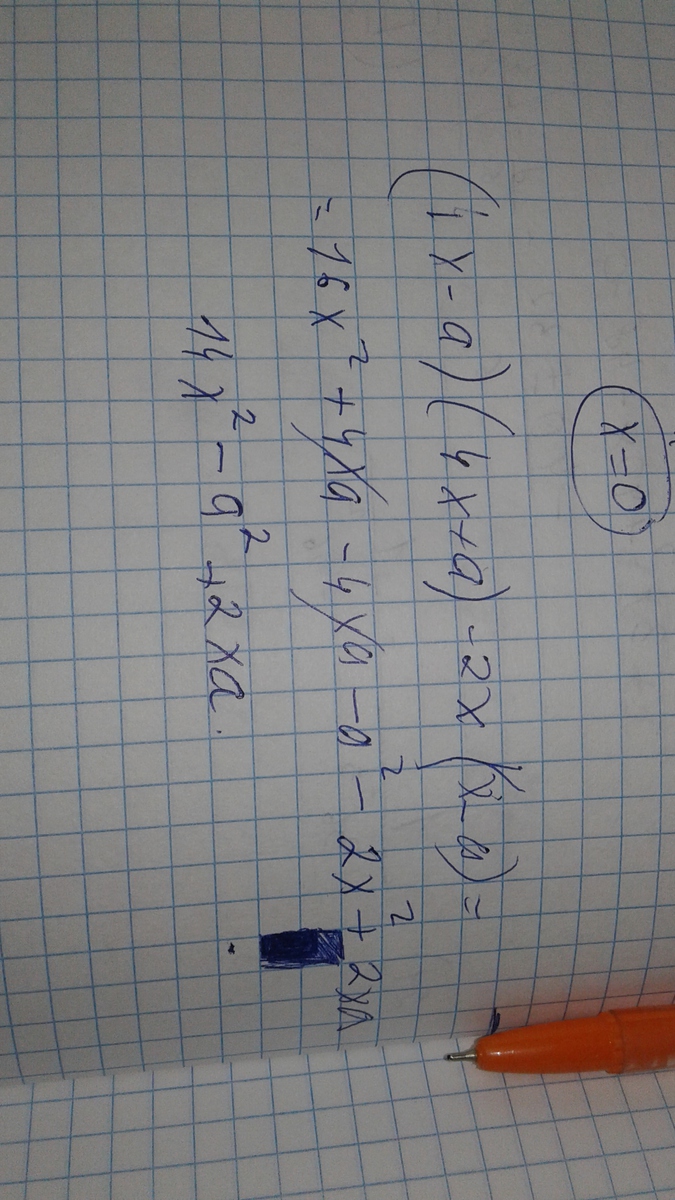 x=0
(4x-a)(4x+a)-2x(x-a)=
=16x²+4xa-4xa-a²-2x²+2xa
14x²-a²+2xa.